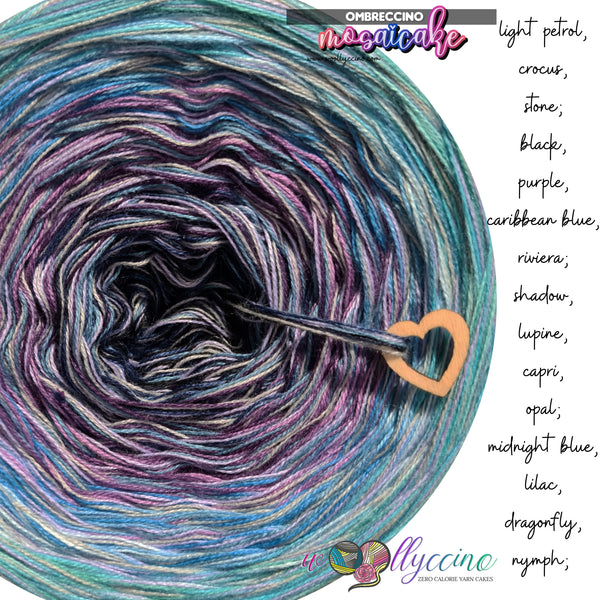 OMBRECCINO
mosaicake
www.woollyccino.com
light petrol,
crocus,
stone;
black,
purple,
caribbean blue,
riviera;
shadow,
lupine,
capri,
opal;
midnight blue,
lilac,
dragonfly,
nymph;
woollyccino
ZERO CALORIE YARN CAKES